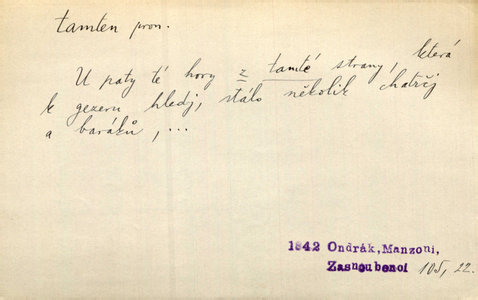 tamten pron.
U paty té hory z tamté strany, která
k gezeru hledj, stálo několik chatrčj
a baráků, ...
1842 Ondrák, Manzoni,
Zasnoubenci 105, 22.